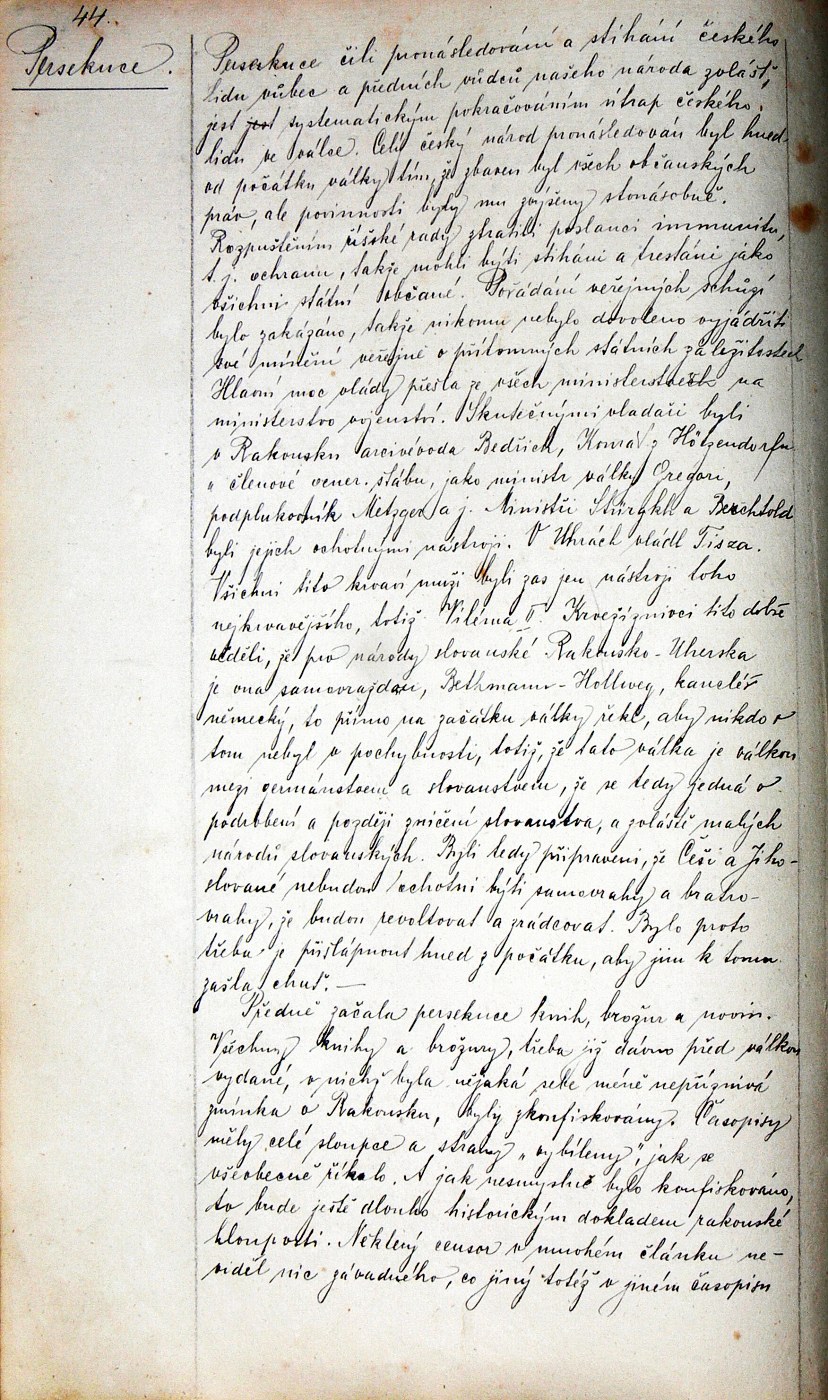 44.
Persekuce.
Persekuce čili pronásledování a stíhání českého
lidu vůbec a předních vůdců našeho národa zvlášť,
jest jest systematickým pokračováním útrap českého
lidu ve válce. Celý český národ pronásledován byl hned
od počátku války tím, že zbaven byl všech občanských
práv, ale povinnosti byly mu zvýšeny stonásobně.
Rozpuštěním říšské rady ztratili poslanci immunitu,
t. j. ochranu, takže mohli býti stíháni a trestáni jako
všichni státní občané. Pořádání veřejných schůzí
bylo zakázáno, takže nikomu nebylo dovoleno vyjádřiti
své mínění veřejně o přítomných státních záležitostech
Hlavní moc vlády přešla ze všech ministerstev na
ministerstvo vojenství. Skutečnými vladaři byli
v Rakousku arcivévoda Bedřich, Konrád z Hötzendorfu
a členové gener. štábu, jako ministr války Gregori,
podplukovník Metzger a j. Ministři Stürgkh a Berchtold
byli jejich ochotnými nástroji. V Uhrách vládl Tisza.
Všichni tito krvaví muži byli zas jen nástroji toho
nejkrvavějšího, totiž Viléma II. Krvežíznivci tito dobře
věděli, že pro národy slovanské Rakousko-Uherska
je ona samovraždou, Bethmann-Hollweg, kancléř
německý, to přímo na začátku války řekl, aby nikdo v
tom nebyl v pochybnosti, totiž, že tato válka je válkou
mezi germánstvem a slovanstvem, že se tedy jedná o
podrobení a později zničení slovanstva, a zvláště malých
národů slovanských. Byli tedy připraveni, že Češi a Jiho-
slované nebudou ochotni býti samovrahy a bratro-
vrahy, že budou revoltovat a zrádcovat. Bylo proto
třeba je přišlápnout hned z počátku, aby jim k tomu
zašla chuť. —
Předně začala persekuce knih, brožur a novin.
Všechny knihy a brožury, třeba již dávno před válkou
vydané, v nichž byla nějaká sebe méně nepříznivá
zmínka o Rakousku, byly zkonfiskovány. Časopisy
měly celé sloupce a strany „vybíleny", jak se
všeobecně říkalo. A jak nesmyslně bylo konfiskováno,
to bude ještě dlouho historickým dokladem rakouské
hlouposti. Některý censor v mnohém článku ne-
viděl nic závadného, co jiný totéž v jiném časopisu